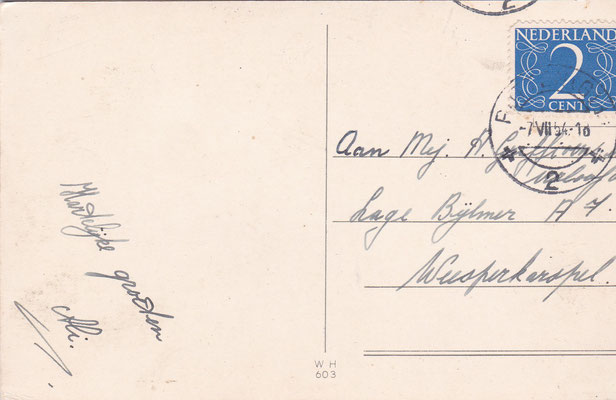 2
NEDERLAND
2
CENT
-7.VII.54.-18
2
Aan Mej. A. G.
Lage Bÿlmer A 7.
Weesperkarspel.
Hartelijke
groeten
Ali.
W H
603